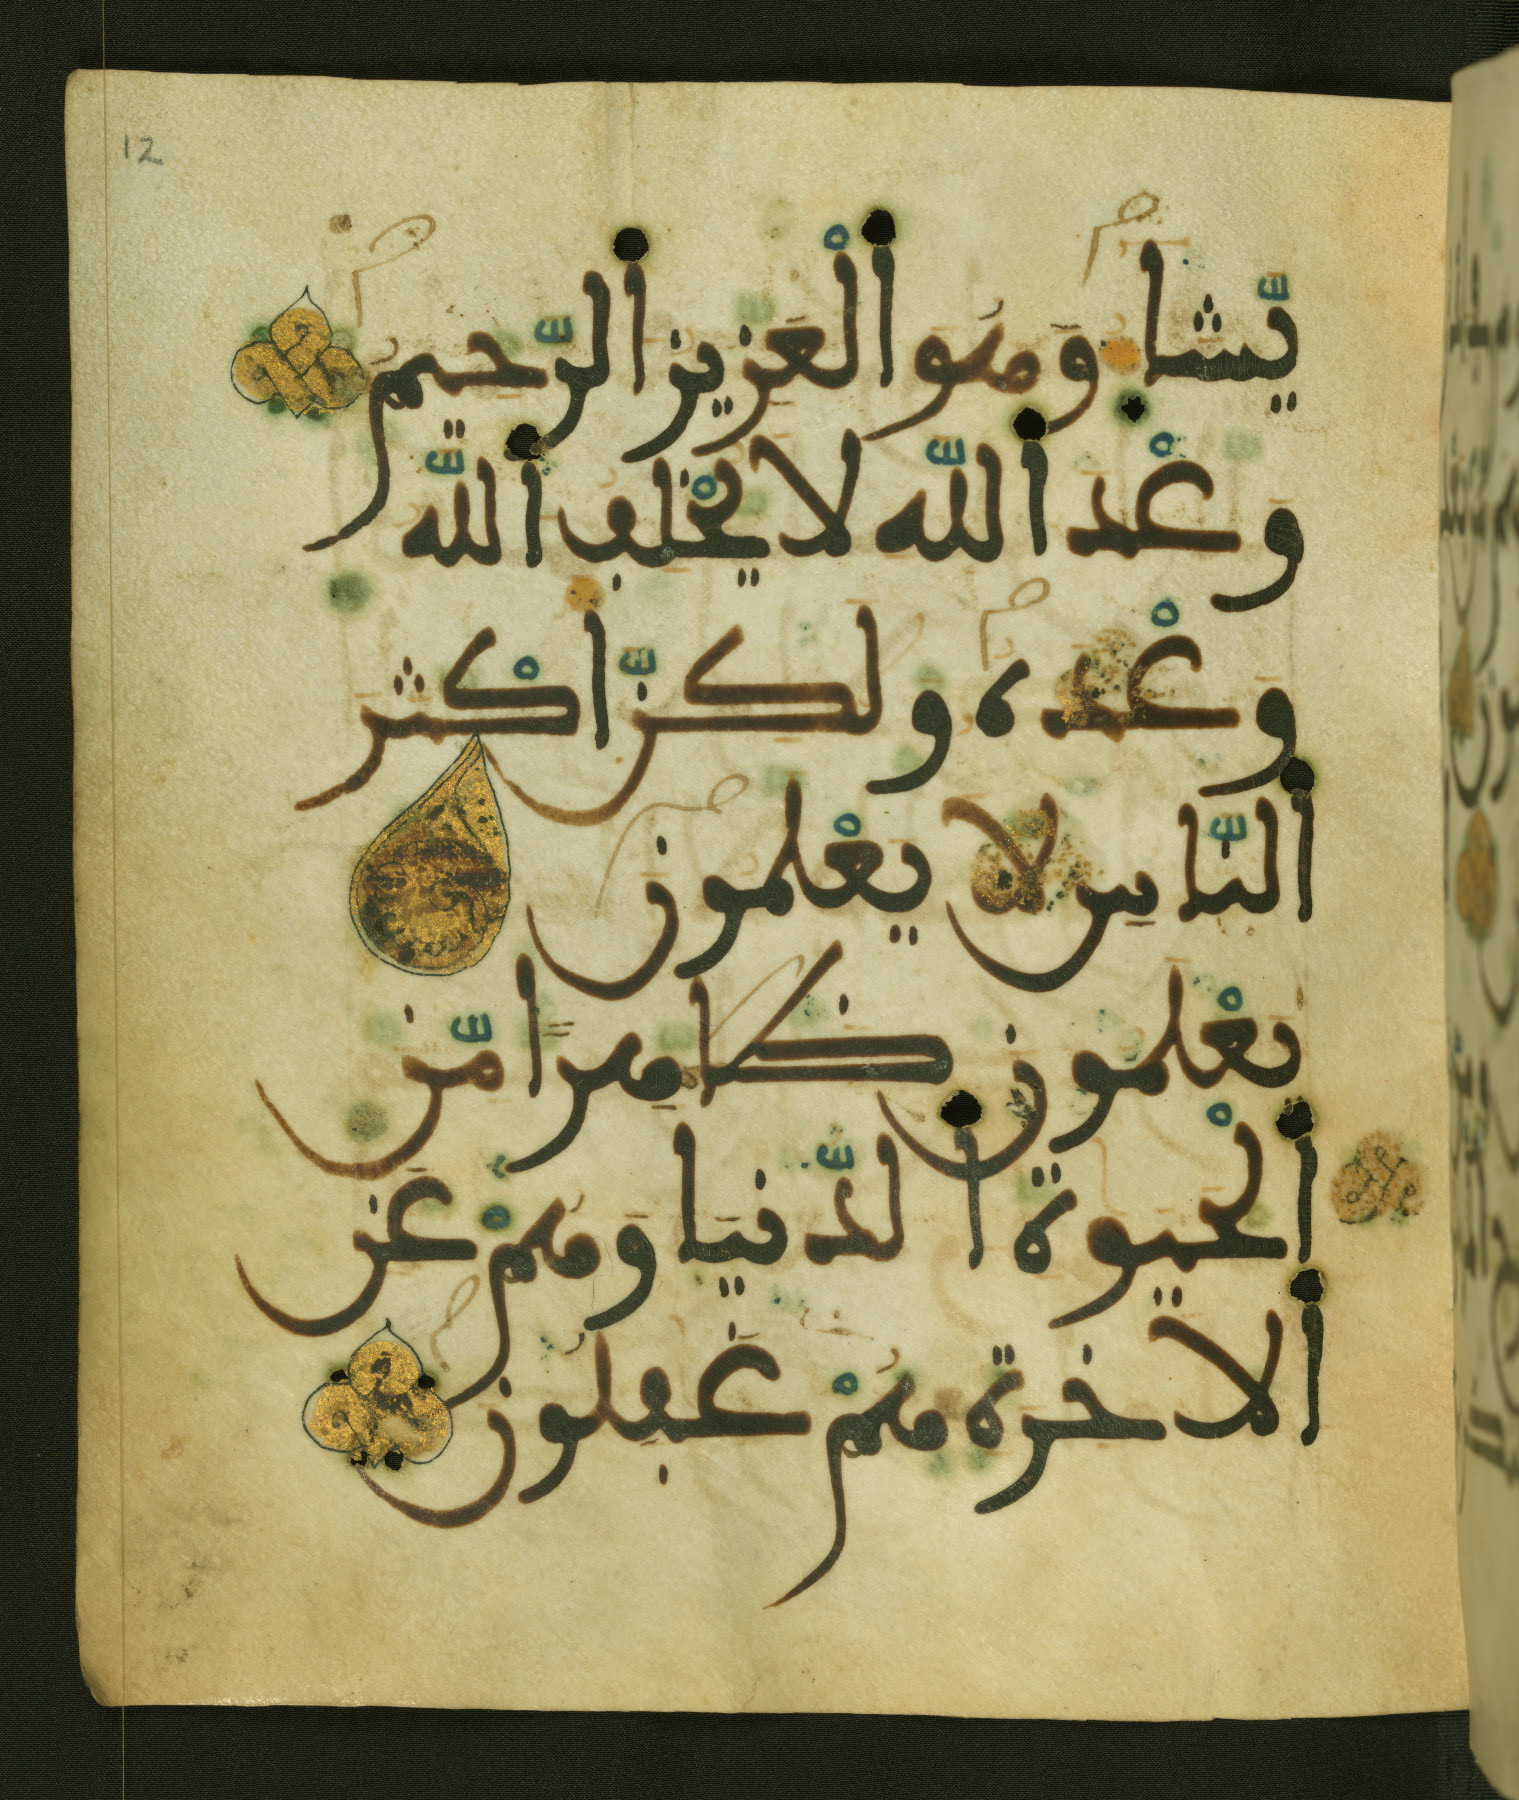 12
يَّشَا وَهُوَ اَلْعَزِيزُ اَلرَّحِيمُ
وَعْدَ اَللَّهِ لَا يُخْلِفُ اَللَّهُ
وَعْدَهُ وَلَكِنَّ أَكْثَرَ
اَلنَّاسِ لَا يَعْلَمُونَ
يَعْلَمُونَ ظَاهِرًا مِّنَ
اَلْحَيَوةِ اَلدُّنْيَا وَهُمْ عَنِ
اَلَاخِرَةِ هُمْ غَفِلُونَ